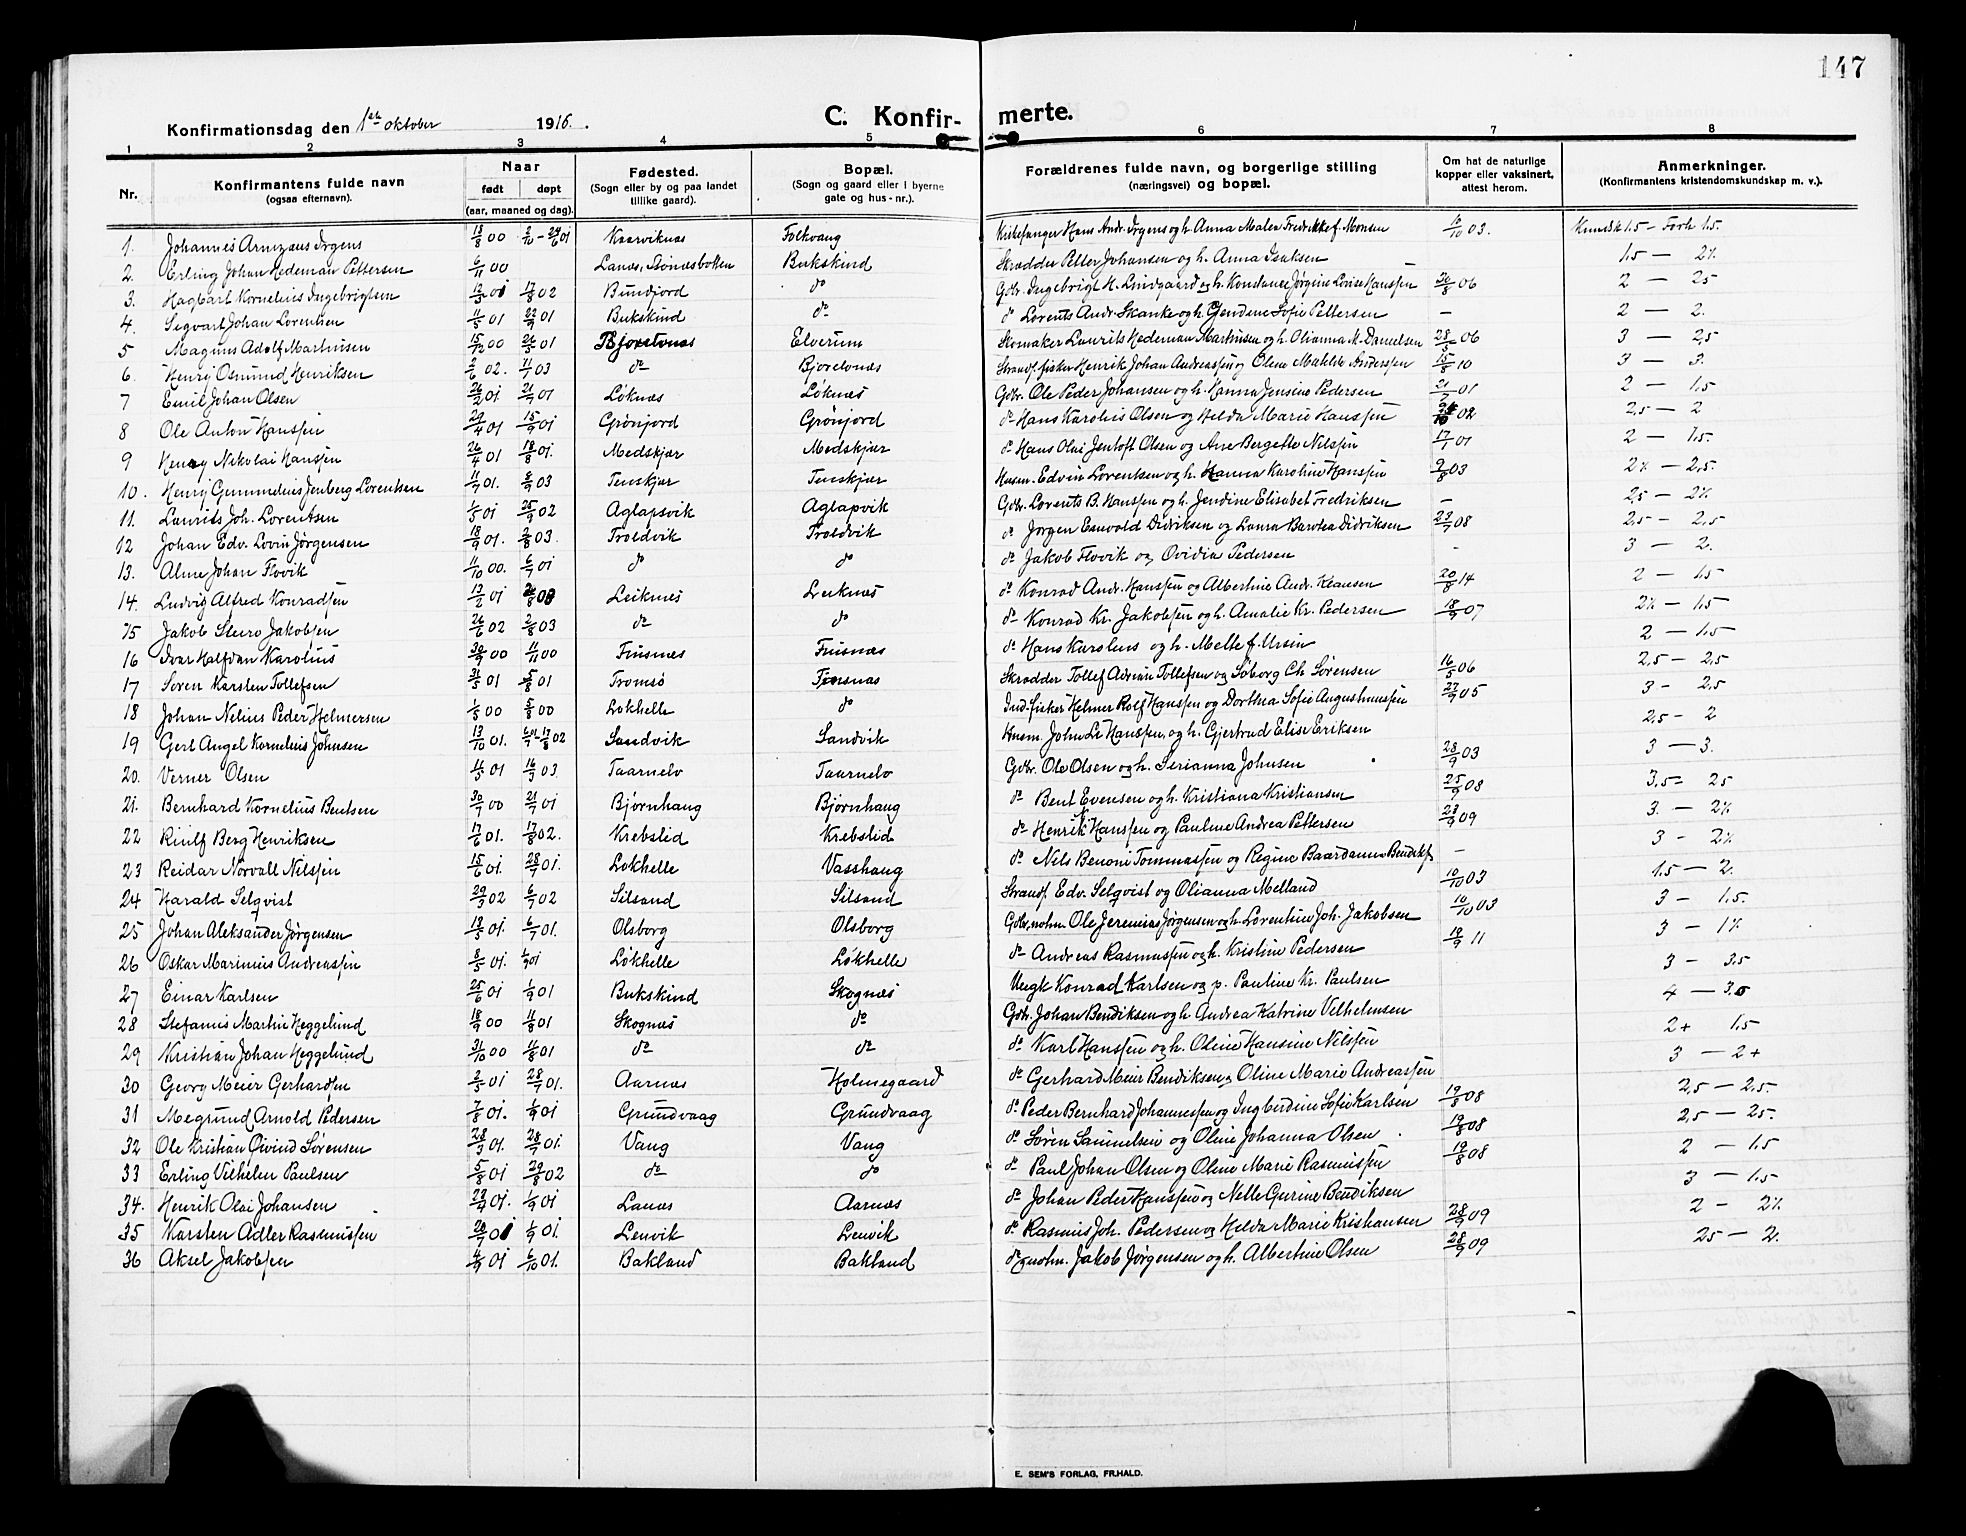 147
Konfirmationsdag den 1ste oktober 1916.
C. Konfir- merte.
1 2 3 4 5 6 7 8
Nr. Konfirmantens fulde navn (ogsaa efternavn). Naar født døpt (aar, maaned og dag). Fødested. (Sogn eller by og paa landet tillike gaard). Bopæl. (Sogn og gaard eller i byerne gate og hus-nr.). Forældrenes fulde navn, og borgerlige stilling (næringsvei) og bopæl. Om hat de naturlige kopper eller vaksinert, attest herom. Anmerkninger. (Konfirmantens kristendomskundskap m. v.).
1. Johannes Irgens 18/8 00 Kaarviknes Folkvang Hans Andr. Irgens og h. Anna Malea Fredrikke f. Monsen 10/10 03. Kundsk 1.5 - Forh 1.5.
2. Erling Johan Hedeman Pettersen 6/11 00 Lanes, Bukskind Skrædder Petter Johansen og h. Anna Isaksen 1.5 — 2½
3. Hagbart Kornelius Ingebrigtsen 17/8 02 Bundjord do Gdbr. Ingebrigt H. Lindgaard og h. Konstance Jørgine Lovise Hanssen 06 2 — 25
4. Sigvart Johan Lorentsen 11/5 01 22/9 01 Bukskind do do Lorents Andr. Skanke og h. Jendine Sofie Pettersen — 2 — 2.
5 Magnus Adolf Markusen 15/12 00 26/5 01 Elverum Skomaker Laurits Hedeman Markusen og h. Olianna M. Danielsen 28/5 06 3 — 2,5
6. Henry Osmund Henriksen 2/6 02. 11/7 03 do Bjorelvnes Strands. fisker Henrik Johan Andreassen og Oline Matilde Anderssen 15/8 10 3 — 3.
7 Emil Johan Olsen 26/2 01 21/7 01 Løknæs Løknæs Gdbr. Ole Peder Johansen og h. Hanna Jensine Pedersen 21/7 01 2 — 1,5
8 Ole Anton Hanssen 29/4 01 15/9 01 Grønjord Grønjord do Hans Karolius Olsen og Helda Marie Hanssen 02 2,5 — 2
9 Henry Nikolai Hanssen 26/4 01 18/8 01. Medskjær Medskjær do Hans Olai Jentoft Olsen og Ane Bergette Nilssen 17/1 01 2 — 1.5.
10. Henry Lorentsen 11/7 01. 6/9 03 Tenskjær Tenskjær Husm. Edvin Lorentsen og h. Hanna Karoline Hanssen 9/8 03 2½ — 2,5.
11. Laurits Joh. Lorentsen 1/5 01 25/9 02 Aglapsvik Aglapvik Gdbr. Lorents B. Hanssen og h. Jendine Elisabet Fredriksen — 25 — 2½
12 Johan Edv. Lovin Jørgensen 18/9 01. 2/8 03. Troldvik Troldvik do Jørgen Esuvald Didriksen og Laura Didriksen 23/7 08 2,5 — 2,5
13. Alme Johan Flovik 11/10 00. 6/7 01 do do do Jakob Flovik og Ovidia Pedersen - 3 — 2.
14. Ludvig Alfred Konradsen 13/2 01 Leiknes Leiknes do Konrad Andr. Hanssen og Albertine Andr. Klausen 20/8 14 2 — 1.5
15 Jakob Sturo Jakobsen 26/6 02 2/8 03 do do do Konrad Kr. Jakobsen og h. Amalie Kr. Pedersen 18/9 07 2½ — 1.5
16 Ivar Halfdan Karolius 30/9 00 11/11 00 Finsnæs Finsnæs do Hans Karolius og h. Mette f. Ursin 2 — 1.5
17 Søren Karsten Tollefsen 31/5 01 5/8 01 Tromsø Finsnæs Skrædder Tollef Adrian Tollefsen og Søborg Ch. Sørensen 16/5 06 2,5 — 2,5
18 Johan Nelius Peder Helmersen 1/5 00 5/8 00 Lokhelle do Ind. fisker Helmer Rolf Hanssen og Dorthea Sofie Augustinussen 22/9 05 3 - 2,5
19 Gert Angel Kornelius Johnsen 13/10 01. 17/8 02 Sandvik Sandvik Husm. John Le Hanssen, og h. Gjertrud Elise Eriksen 2,5 - 2
20. Verner Olsen 11/5 01 16/3 03. Taarnelv Taarnelv Gdbr. Ole Olsen og h. Serianna Johnsen 28/9 03 3 — 3.
21. Bernhard Kornelius Bentsen 30/7 00 21/7 01 Bjørnhaug Bjørnhaug do Bent Evensen og h. Kristiana Kristiansen 25/9 08 3,5 = 25
22 Riulf Berg Henriksen 17/6 01. 17/8 02. Krebslid Krebslid do Henrik Hanssen og Pauline Andrea Pettersen 23/9 09 3. — 2½
23 Reidar Norvall Nilssen 15/6 01. 28/7 01. Lokhelle Vasshaug do Nils Benoni Tommassen og Regine — 3 - 2½
24 Harald Selqvist 29/3 02 6/7 02 Silsand Silsand Strands. Edv. Selqvist og Olianna Melland 10/10 03 1.5 — 2.
25 Johan Aleksander Jørgensen 13/5 01. 6/7 01. Olsborg Olsborg Gdbr. nohm. Ole Jeremias Jørgensen og h. Lorentine Joh. Jakobsen 10/10 03 3 - 1.5.
26 Oskar Marinius Andreassen 8/5 01. 1/9 01 Løkhelle Løkhelle do Andreas Rasmussen og h. Kristine Pedersen 19/9 11 3 — 1½
27 Einar Karlsen 25/6 01 1/9 01 Bukskind Skognæs Ungk Konrad Karlsen og p. Pauline Kr. Paulsen 3 — 3.5
28 Stefanus Martin Heggelund 18/9 00 11/8 01 Skognæs do Gdbr. Johan Bendiksen og h Andrea Katrine Vilhelmsen 4 — 3.5
29 Kristian Johan Heggelund 31/10 00 11/8 01 do do do Karl Hanssen og h. Oline Hansine Nilssen 2+ 1.5
30 Georg Meier Gerhardsen 2/5 01 28/7 01. Aarnæs Holmegaard do Gerhard Meier Bendiksen og Oline Marie Andreassen 3 — 2+
31 Megrund Arnold Pedersen 7/8 01. 1/9 01 Grundvaag Grundvaag do Peder Bernhard Johannessen og Ingberdine Sofie Karlsen 19/8 08 2,5 — 2,5
32 Ole Kristian Øivind Sørensen 28/3 01. 28/7 01. Vang Vang do Søren Samuelsen og Oline Johanna Olsen 19/8 08 2,5 — 25.
33 Erling Vilhelm Paulsen 5/8 01 29/8 02 do do do Paul Johan Olsen og Oline Marie Rasmussen 19/8 08 2 — 1.5
34. Henrik Olai Johansen 01. 1/9 01 Lanæs Aarnæs do Johan Peder Hanssen og Nelle Gurine Bendiksen 3 — 1.5
35 Karsten Adler Rasmussen 01 1/9 01. Lenvik Lenvik do Rasmus Joh. Pedersen og Helda Marie Kristiansen 28/9 09 2 - 2½
36 Aksel Jakobsen 4/7 01 6/10 01. Bakland Bakland do nohm. Jakob Jørgensen og h. Albertine Olsen 28/9 09 25 — 2.
E. SEM'S FORLAG, FR.HALD.